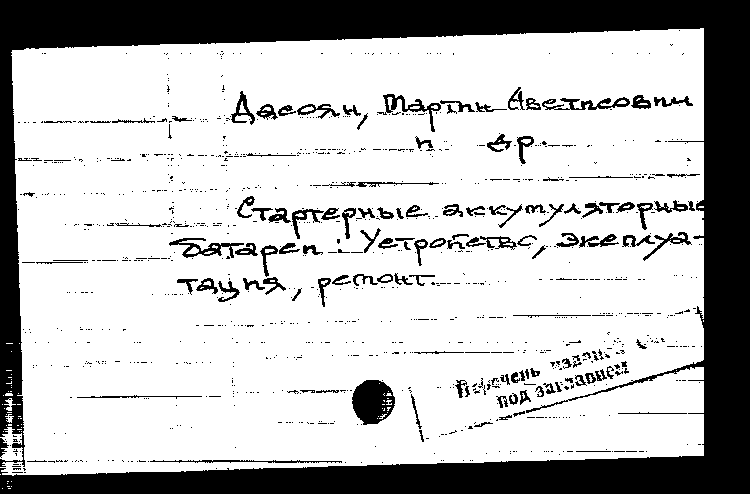 Дасоян, Мартин Аветисович
и др.
Стартерные аккумуляторные
батареи: Устройство, эксплуа-
тация, ремонт.
Перечень изданий
под заглавием